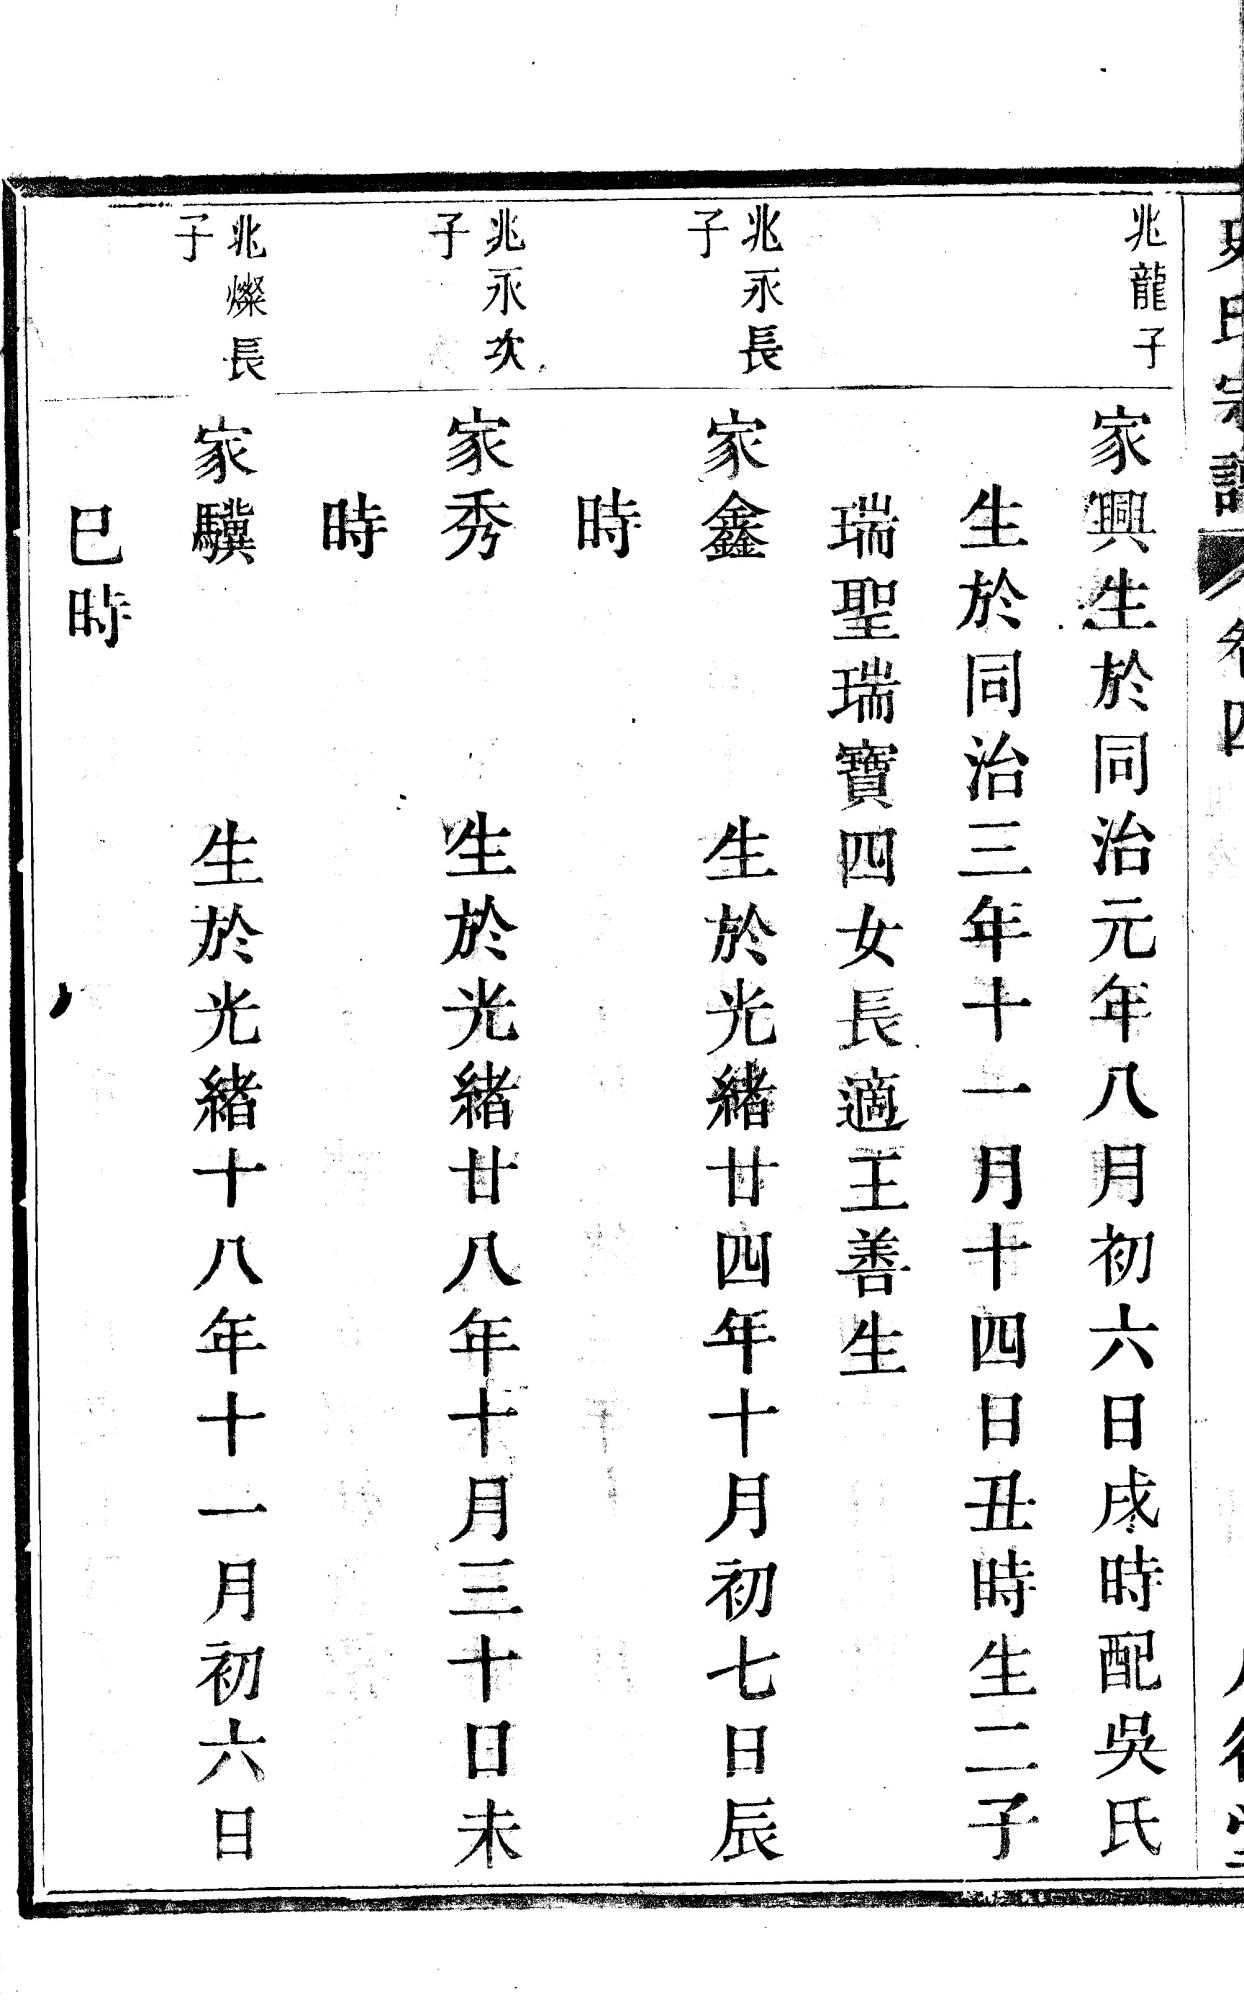 氏宗譜
卷四
兆龍子
家興生於同治元年八月初六日戌時配吳氏
生於同治三年十一月十四日丑時生二子
瑞聖瑞寶四女長適王善生
兆永長
子
家鑫　生於光緒廿四年十月初七日辰
時
兆永次
子
家秀　生於光緒廿八年十月三十日未
時
兆燦長
子
家驥　生於光緒十八年十一月初六日
巳時